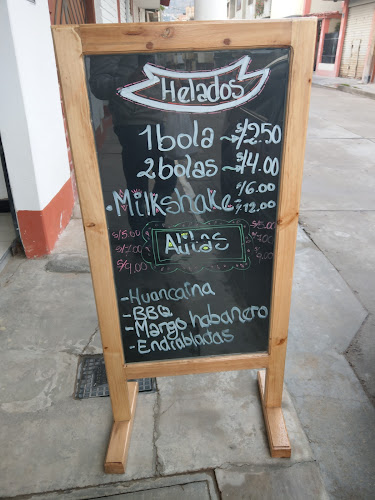 Helados
1 bola → S/2.50
2 bolas → S/4.00
S/6.00
• Milkshake = S/12.00
S/5.00 S/5.00
S/7.00 Alitas S/7.00
S/9.00 S/9.00
- Huancaína
- BBQ
- Mango habanero
- Endiabladas